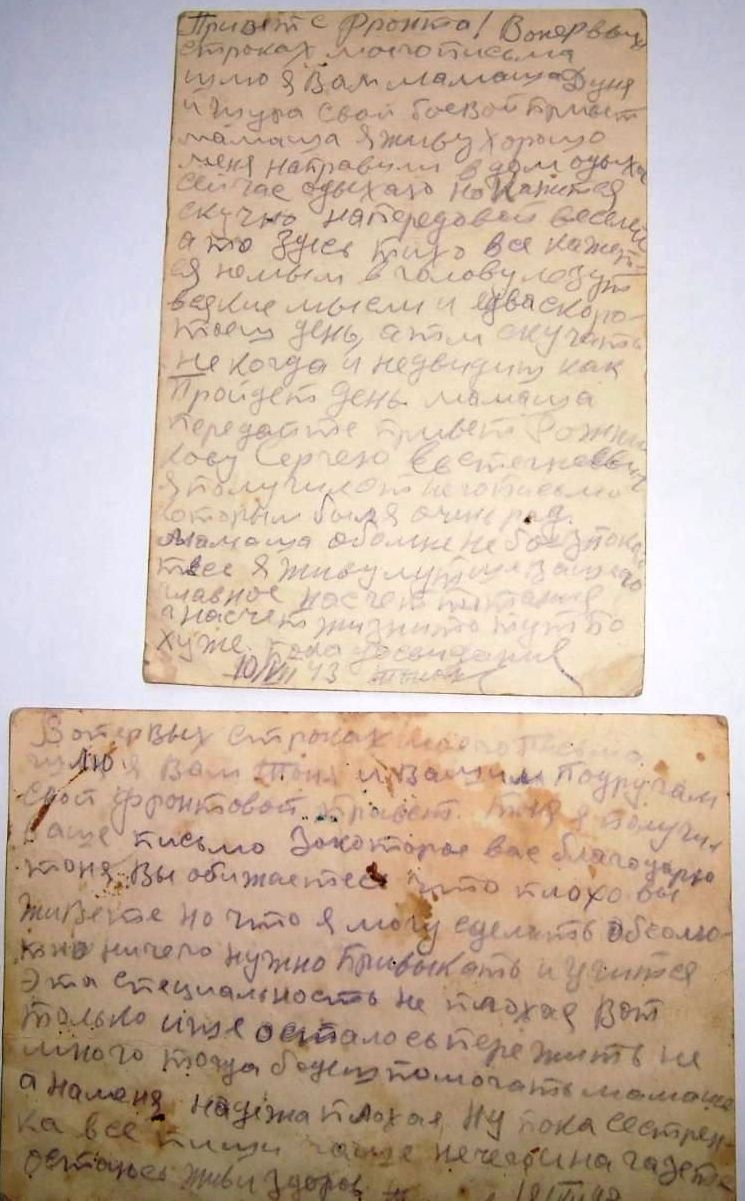 Привет с фронта! Вопервых
строках моего письма
шлю я Вам мамаша Дуня
и Шура свой боевой привет
мамаша я живу хорошо
меня направили в дом одыха
сейчас одыхаю но кажится
скучно напередовой веселей
а то здесь тихо все кажет-
ся немым в голову лезут
всякие мысли и едва скоро-
таеш день, а там скучать
не когда и невидиш как
Пройдет день. мамаша
передайте привет
Сергею
я получил от него письмо
которым был я очень рад.
мамаша обомне не безпокой
тесь я живу лутше вашего
главное насчет питания
а насчет жизни то тут по
хуже. пока досвидания
10/VII 43
Вопервых строках моего письма
шлю я Вам Тоня и Вашим подругам
свой фронтовой привет. Тоня я получил
ваше письмо закоторое вас благодарю
тоня Вы обижаетесь что плохо вы
живете но что я могу сделать абсолю-
тно ничего нужно привыкать и учится
Эта специальность не плохая Вот
только ище осталось пережить не
много тогда будеш помогать мамаше
а наменя надежа плохая Ну пока сестрен-
ка все пиши чаще газете
остаюсь жив и здоров